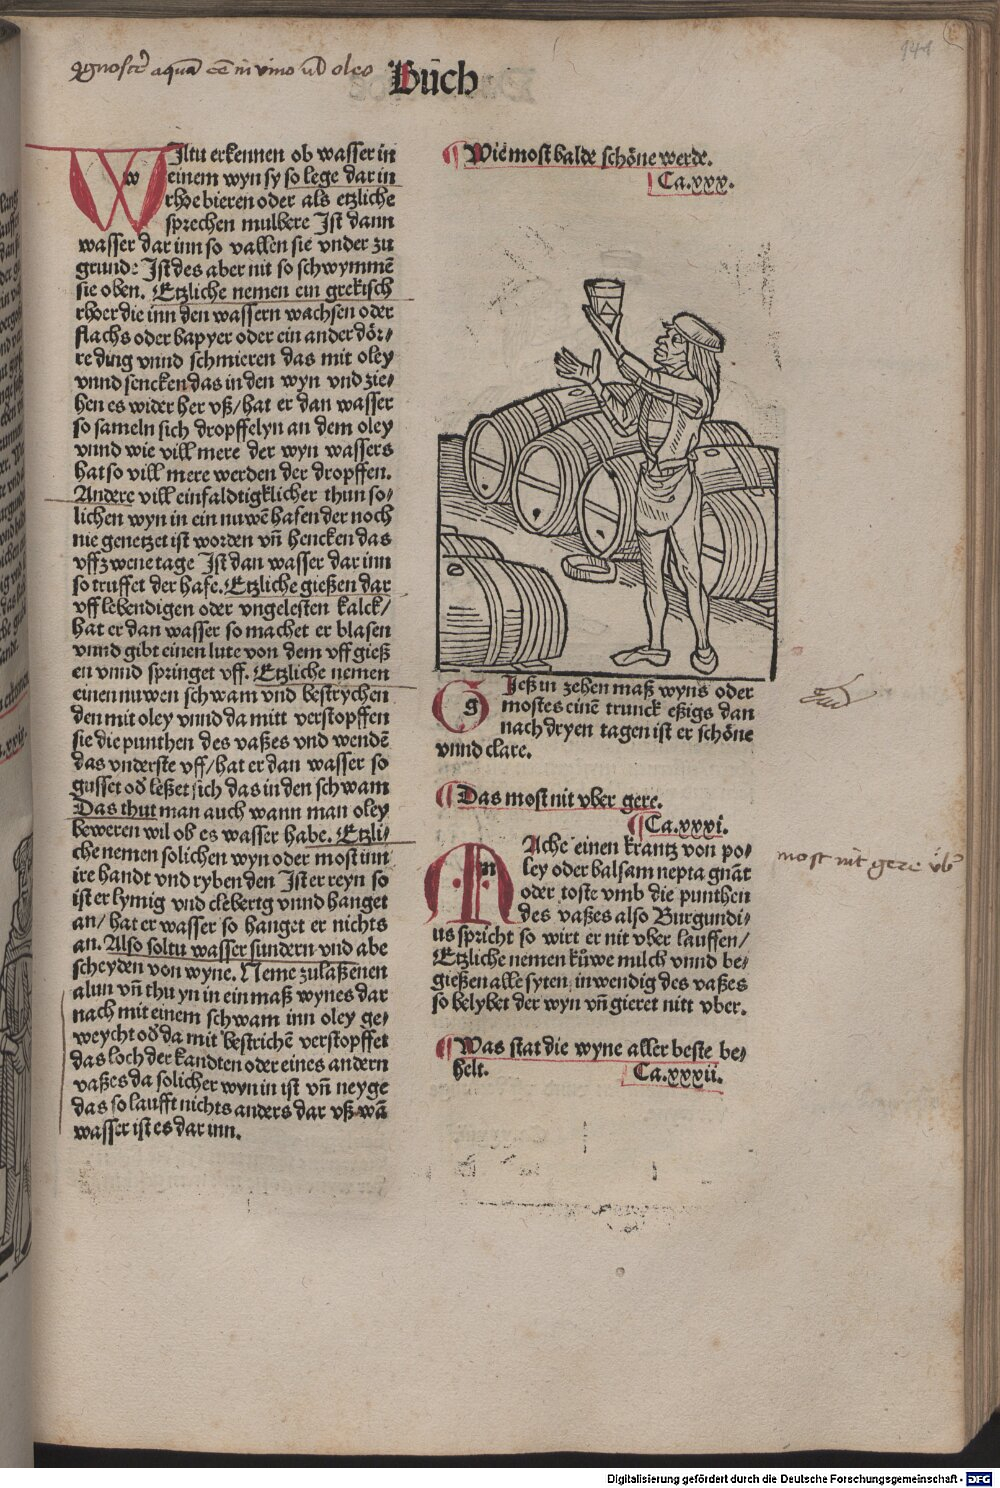 Bůch
WIltu erkennen ob wasser in
einem wyn sy so lege dar in
rhoe bieren oder als etzliche
sprechen mulbere Ist dann
wasser dar inn so vallen sie vnder zu
grund: Ist des aber nit so schwymmē
sie oben. Etzliche nemen ein grekisch
rhoer die inn den wassern wachsen oder
flachs oder bapyer oder ein ander dör-
re ding vnnd schmieren das mit oley
vnnd sencken das in den wyn vnd zie-
hen es wider her vß/ hat er dan wasser
so sameln sich dropffelyn an dem oley
vnnd wie vill mere der wyn wassers
hat so vill mere werden der dropffen.
Andere vill einfaldtigklicher thun so-
lichen wyn in ein nuwē hafen der noch
nie genetzet ist worden vñ hencken das
vff zwene tage Ist dan wasser dar inn
so truffet der hafe. Etzliche gießen dar
vff lebendigen oder vngelesten kalck/
hat er dan wasser so machet er blasen
vnnd gibt einen lute von dem vff gieß
en vnnd springet vff. Etzliche nemen
einen nuwen schwam vnd bestrychen
den mit oley vnnd da mitt verstopffen
sie die punthen des vaßes vnd wendē
das vnderste vff/ hat er dan wasser so
gusset od leßet sich das in den schwam
Das thut man auch wann man oley
beweren wil ob es wasser habe. Etzli-
che nemen solichen wyn oder most inn
ire handt vnd ryben den Ist er reyn so
ist er lymig vnd clebertg vnnd hanget
an/ hat er wasser so hanget er nichts
an. Also soltu wasser sundern vnd abe
scheyden von wyne. Neme zulaßenen
alun vñ thu yn in ein maß wynes dar
nach mit einem schwam inn oley ge-
weycht od da mit bestrichē verstopffet
das loch der kandten oder eines andern
vaßes da solicher wyn in ist vñ neyge
das so laufft nichts anders dar vß wā
wasser ist es dar inn.
Wie most balde schöne werde.
Ca.xxx.
GIeß in zehen maß wyns oder
mostes einē trunck eßigs dan
nach dryen tagen ist er schöne
vnnd clare.
Das most nit vber gere.
Ca.xxxi.
MAche einen krantz von po-
ley oder balsam nepta gnāt
oder toste vmb die punthen
des vaßes also Burgundi-
us spricht so wirt er nit vber lauffen/
Etzliche nemen kůwe milch vnnd be-
gießen alle syten inwendig des vaßes
so belybet der wyn vñ gieret nitt vber.
most nit gere üb
Was stat die wyne aller beste be-
helt.
Ca.xxxii.
Digitalisierung gefördert durch die Deutsche Forschungsgemeinschaft - DFG